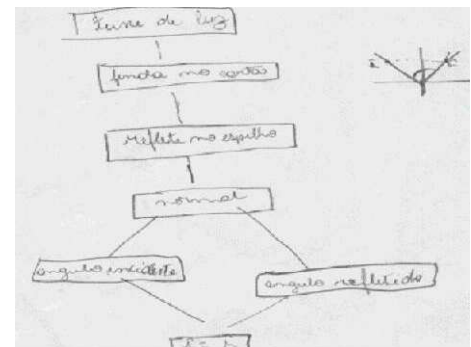 feixe de luz
fenda no cartão
reflete no espelho
normal
angulo incidente
angulo refletido